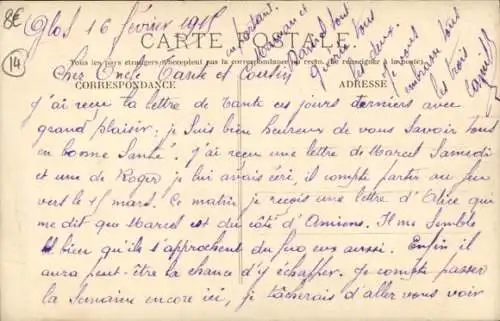 8€
14
Glos 16 février 1915
CARTE POSTALE
Tous les pays étrangers n'acceptent pas la correspondance au recto, se renseigner à la poste.
CORRESPONDANCE
ADRESSE
Cher Oncle Tante et Cousin
J'ai reçu la lettre de tante ces jours derniers avec
grand plaisir; je suis bien heureux de vous savoir tous
en bonne santé. J'ai reçu une lettre de Marcel Samedi
et une de Roger je lui avais écri, il compte partir au feu
vers le 15 mars. Ce matin je reçois une lettre d'Alice qui
me dit que Marcel est du côté d'Amiens. Il me semble
bien qu'ils s'approchent du feu eux aussi. Enfin il
aura peut-être la chance d'y échapper. Je compte passer
la semaine encore ici, je tâcherais d'aller vous voir
en partant.
Maman et
Daniel sont
guéris tous
les deux.
Je vous
embrasse tous
les trois